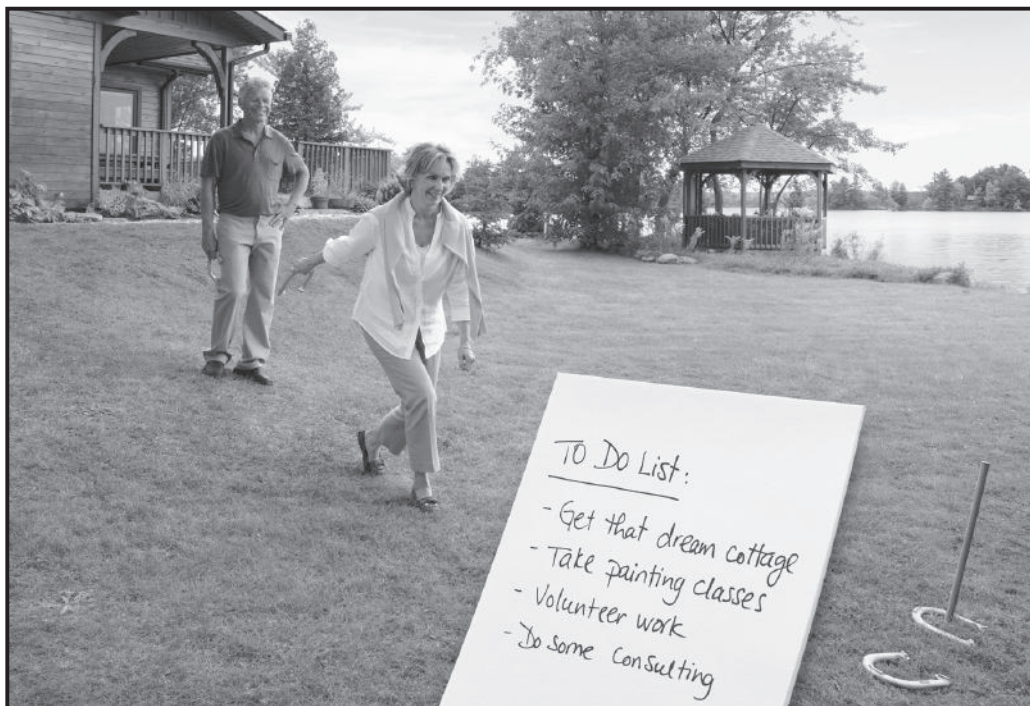 TO DO List:
- Get that dream cottage
- Take painting classes
- Volunteer work
- Do some consulting